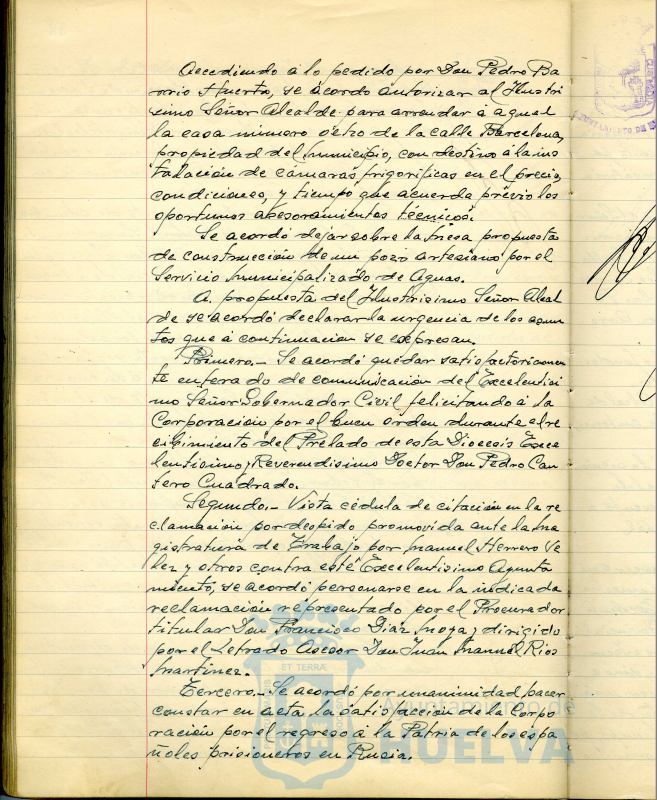 Accediendo á lo pedido por Don Pedro Ba
rrio Huerto, se acordó autorizar al Ilustrí
simo Señor Alcalde para arrendar á aquel
la casa número ocho de la calle Barcelona,
propiedad del Municipio, con destino á la ins
talación de cámaras frigoríficas en el precio,
condiciones, y tiempo que acuerda previo los
oportunos asesoramientos técnicos.
Se acordó dejar sobre la Mesa propuesta
de construcción de un pozo artesiano por el
Servicio Municipalizado de Aguas.
A propuesta del Ilustrísimo Señor Alcal
de se acordó declarar la urgencia de los asun
tos que á continuación se expresan.
Primero.- Se acordó quedar satisfactoriamen
te enterado de comunicación del Excelentísi
mo Señor Gobernador Civil felicitando á la
Corporación por el buen orden durante el re
cibimiento del Prelado de esta Diócesis Exce
lentísimo y Reverendísimo Doctor Don Pedro Can
tero Cuadrado.
Segundo.- Vista cédula de citación en la re
clamación por despido promovida ante la Ma
gistratura de Trabajo por Manuel Herrero Ve
lez y otros contra este Excelentísimo Ayunta
miento, se acordó personarse en la indicada
reclamación representado por el Procurador
titular Don Francisco Díaz Moya y dirigido
por el Letrado Asesor Don Juan Manuel Ríos
Martínez.
Tercero.- Se acordó por unanimidad hacer
constar en acta, la satisfacción de la Corpo
ración por el regreso á la Patria de los espa
ñoles prisioneros en Rusia.
ET TERRÆ
Ayuntamiento de
HUELVA